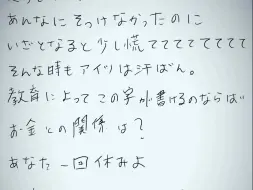 あんなにそっけなかったのに
いざとなると少し慌てててててててて
そんな時もアイツは汗ばん。
教育によってこの字が書けるのならば
お金との関係は?
あなた一回休みよ